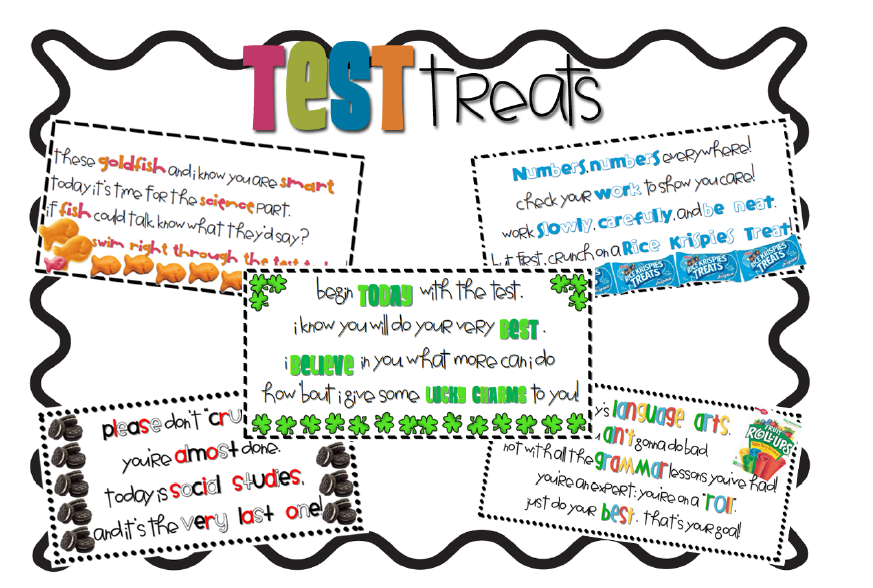 TEST treats
these goldfish and i know you are smart
today it's time for the science part.
if fish could talk, know what they'd say?
swim right through the test
Numbers, numbers everywhere!
check your work to show you care!
work slowly, carefully, and be neat.
but first, crunch on a Rice Krispies Treat!
RICE KRISPIES TREATS
RICE KRISPIES TREATS
RICE KRISPIES TREATS
begin TODAY with the test.
i know you will do your very BEST.
i BELIEVE in you. what more can i do
how 'bout i give some LUCKY CHARMS to you!
please don't "cru
you're almost done.
today is social studies,
and it's the very last one!
language arts,
ain't gonna do bad
not with all the grammar lessons you've had!
you're an expert; you're on a "roll".
just do your best. that's your goal!
FRUIT ROLL-UPS